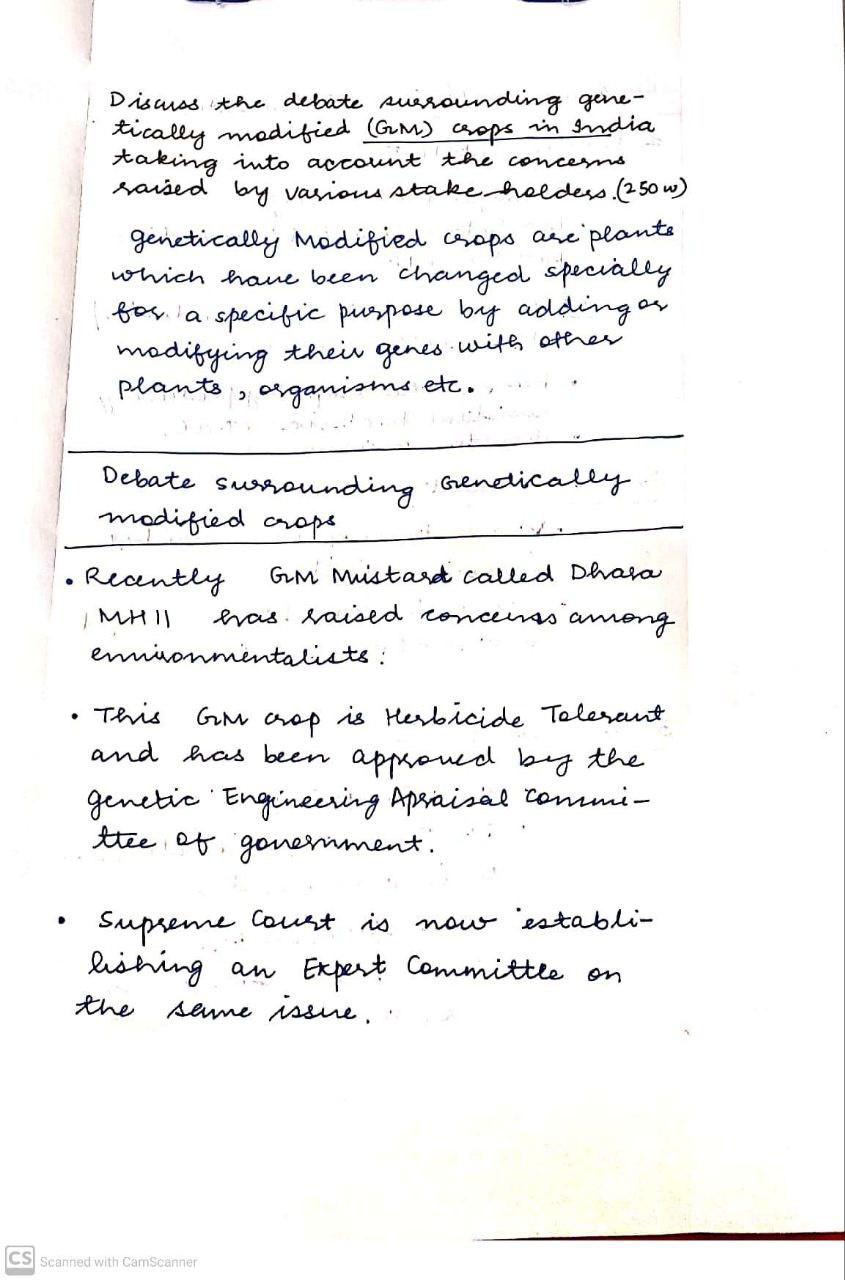 Discuss the debate surrounding gene-
tically modified (GM) crops in India
taking into account the concerns
raised by various stake-holders. (250 w)
genetically Modified crops are plants
which have been changed specially
for a specific purpose by adding or
modifying their genes with other
plants, organisms etc.
Debate surrounding Genetically
modified crops
• Recently GM Mustard called Dhara
MH 11 has raised concerns among
environmentalists.
• This GM crop is Herbicide Tolerant
and has been approved by the
genetic Engineering Apraisal commi-
ttee of government.
• Supreme Court is now establi-
lishing an Expert Committee on
the same issue.
CS Scanned with CamScanner